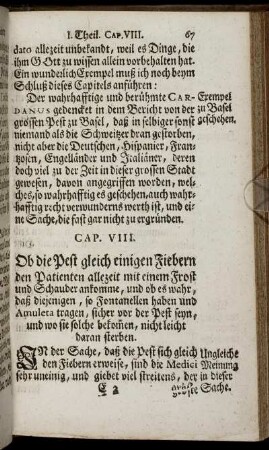 I. Theil. CAP. VIII. 67
dato allezeit unbekandt, weil es Dinge, die
ihm GOtt zu wissen allein vorbehalten hat.
Ein wunderlich Exempel muß ich noch beym
Schluß dieses Capitels anführen:
Der wahrhafftige und berühmte CAR- Exempel
DANUS gedencket in dem Bericht von der zu Basel
grossen Pest zu Basel, daß in selbiger sonst geschehen.
niemand als die Schweitzer dran gestorben,
nicht aber die Deutschen, Hispanier, Fran-
zosen, Engelländer und Italiäner, deren
doch viel zu der Zeit in dieser grossen Stadt
gewesen, davon angegriffen worden, wel-
ches, so wahrhafftig es geschehen, auch wahr-
hafftig recht verwunderns werth ist, und ei-
ne Sache, die fast gar nicht zu ergründen.
CAP. VIII.
Ob die Pest gleich einigen Fiebern
den Patienten allezeit mit einem Frost
und Schauder ankomme, und ob es wahr,
daß diejenigen, so Fontanellen haben und
Amuleta tragen, sicher vor der Pest seyn,
und wo sie solche bekomen, nicht leicht
daran sterben.
IN der Sache, daß die Pest sich gleich Ungleiche
den Fiebern erweise, sind die Medici Meinung
sehr uneinig, und giebet viel streitens, der in dieser
E 2 Sache.